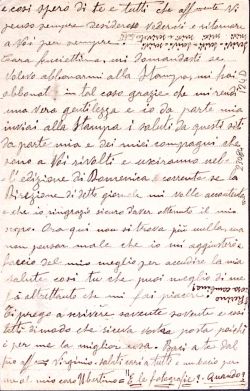 e così spero di te e tutti che affmente Vi
penso sempre desideroso rivedervi e ritornare
a Voi per sempre!
Cara mogliettina, mi domandasti se
volevo abbonarmi alla Stampa, mi hai
abbonat in tal caso grazie che mi rendi
una vera gentilezza e io da parte mia
inviai alla Stampa i saluti da questi siti
da parte mia e dei miei compagni che
sono a Voi rivolti e usciranno nel
l'edizione di Domenica corrente se la
Direzione di detto giornale mi volle accontentare
e che io ringrazio sicuro d'aver ottenuto il mio
scopo. Ora qui non si trova più nulla, ma
non pensar male che io mi aggiusterò
faccio del mio meglio per accudire la mia
salute così tu che puoi meglio di me
fa altrettanto che mi fai piacere!
Ti prego a scrivere sovente sovente e così
tutti di modo che riceva vostra posta poichè
è per me la miglior cosa. Baci a te dal
tuo aff Virginio. saluti cari a tutti e un bacio par
al mio caro Ubertino = E le fotografie? Quando?